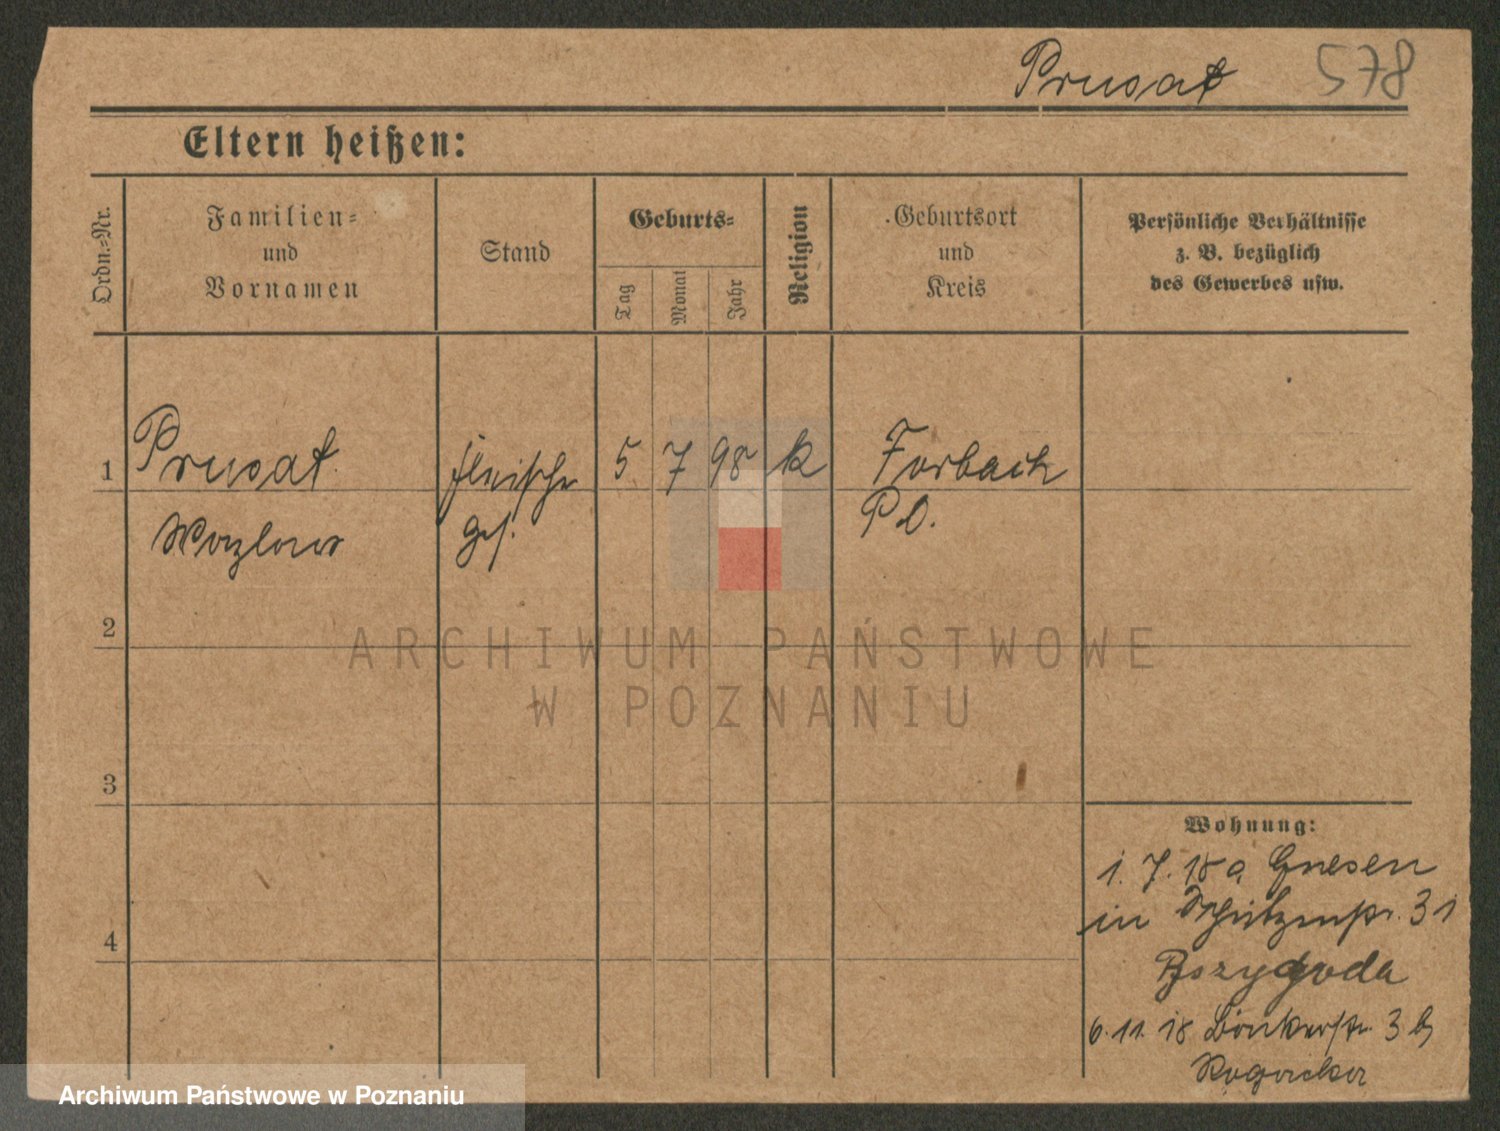 Prusat 578
Eltern heißen:
Ordn.=Nr.
Familien=
und
Vornamen
Stand
Geburts=
Tag
Monat
Jahr
Religion
Geburtsort
und
Kreis
Persönliche Verhältnisse
z. B. bezüglich
des Gewerbes usw.
1 Prusat fleischer 5 7 98 k Forbach
Wazlaw ges. P.O.
2
3
4
ARCHIWUM PAŃSTWOWE
W POZNANIU
Wohnung:
1. 7. 18 a Gnesen
in Schützenstr. 31
Pszygoda
6. 11. 18 3 b
Archiwum Państwowe w Poznaniu